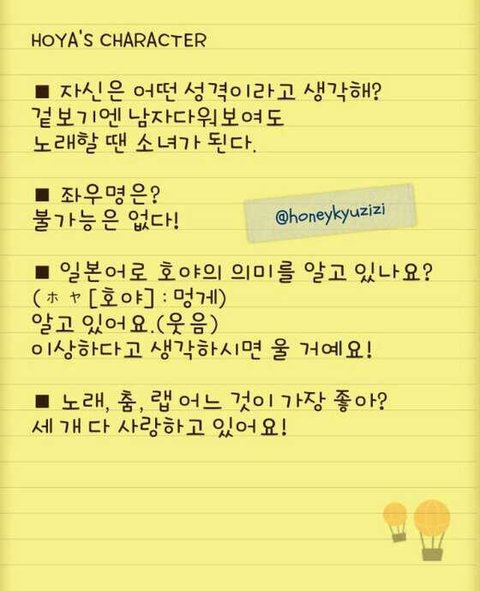 HOYA'S CHARACTER
■ 자신은 어떤 성격이라고 생각해?
겉보기엔 남자다워보여도
노래할 땐 소녀가 된다.
■ 좌우명은?
불가능은 없다!
@honeykyuzizi
■ 일본어로 호야의 의미를 알고 있나요?
(ホヤ[호야]:멍게)
알고 있어요.(웃음)
이상하다고 생각하시면 울 거예요!
■ 노래, 춤, 랩 어느 것이 가장 좋아?
세 개 다 사랑하고 있어요!